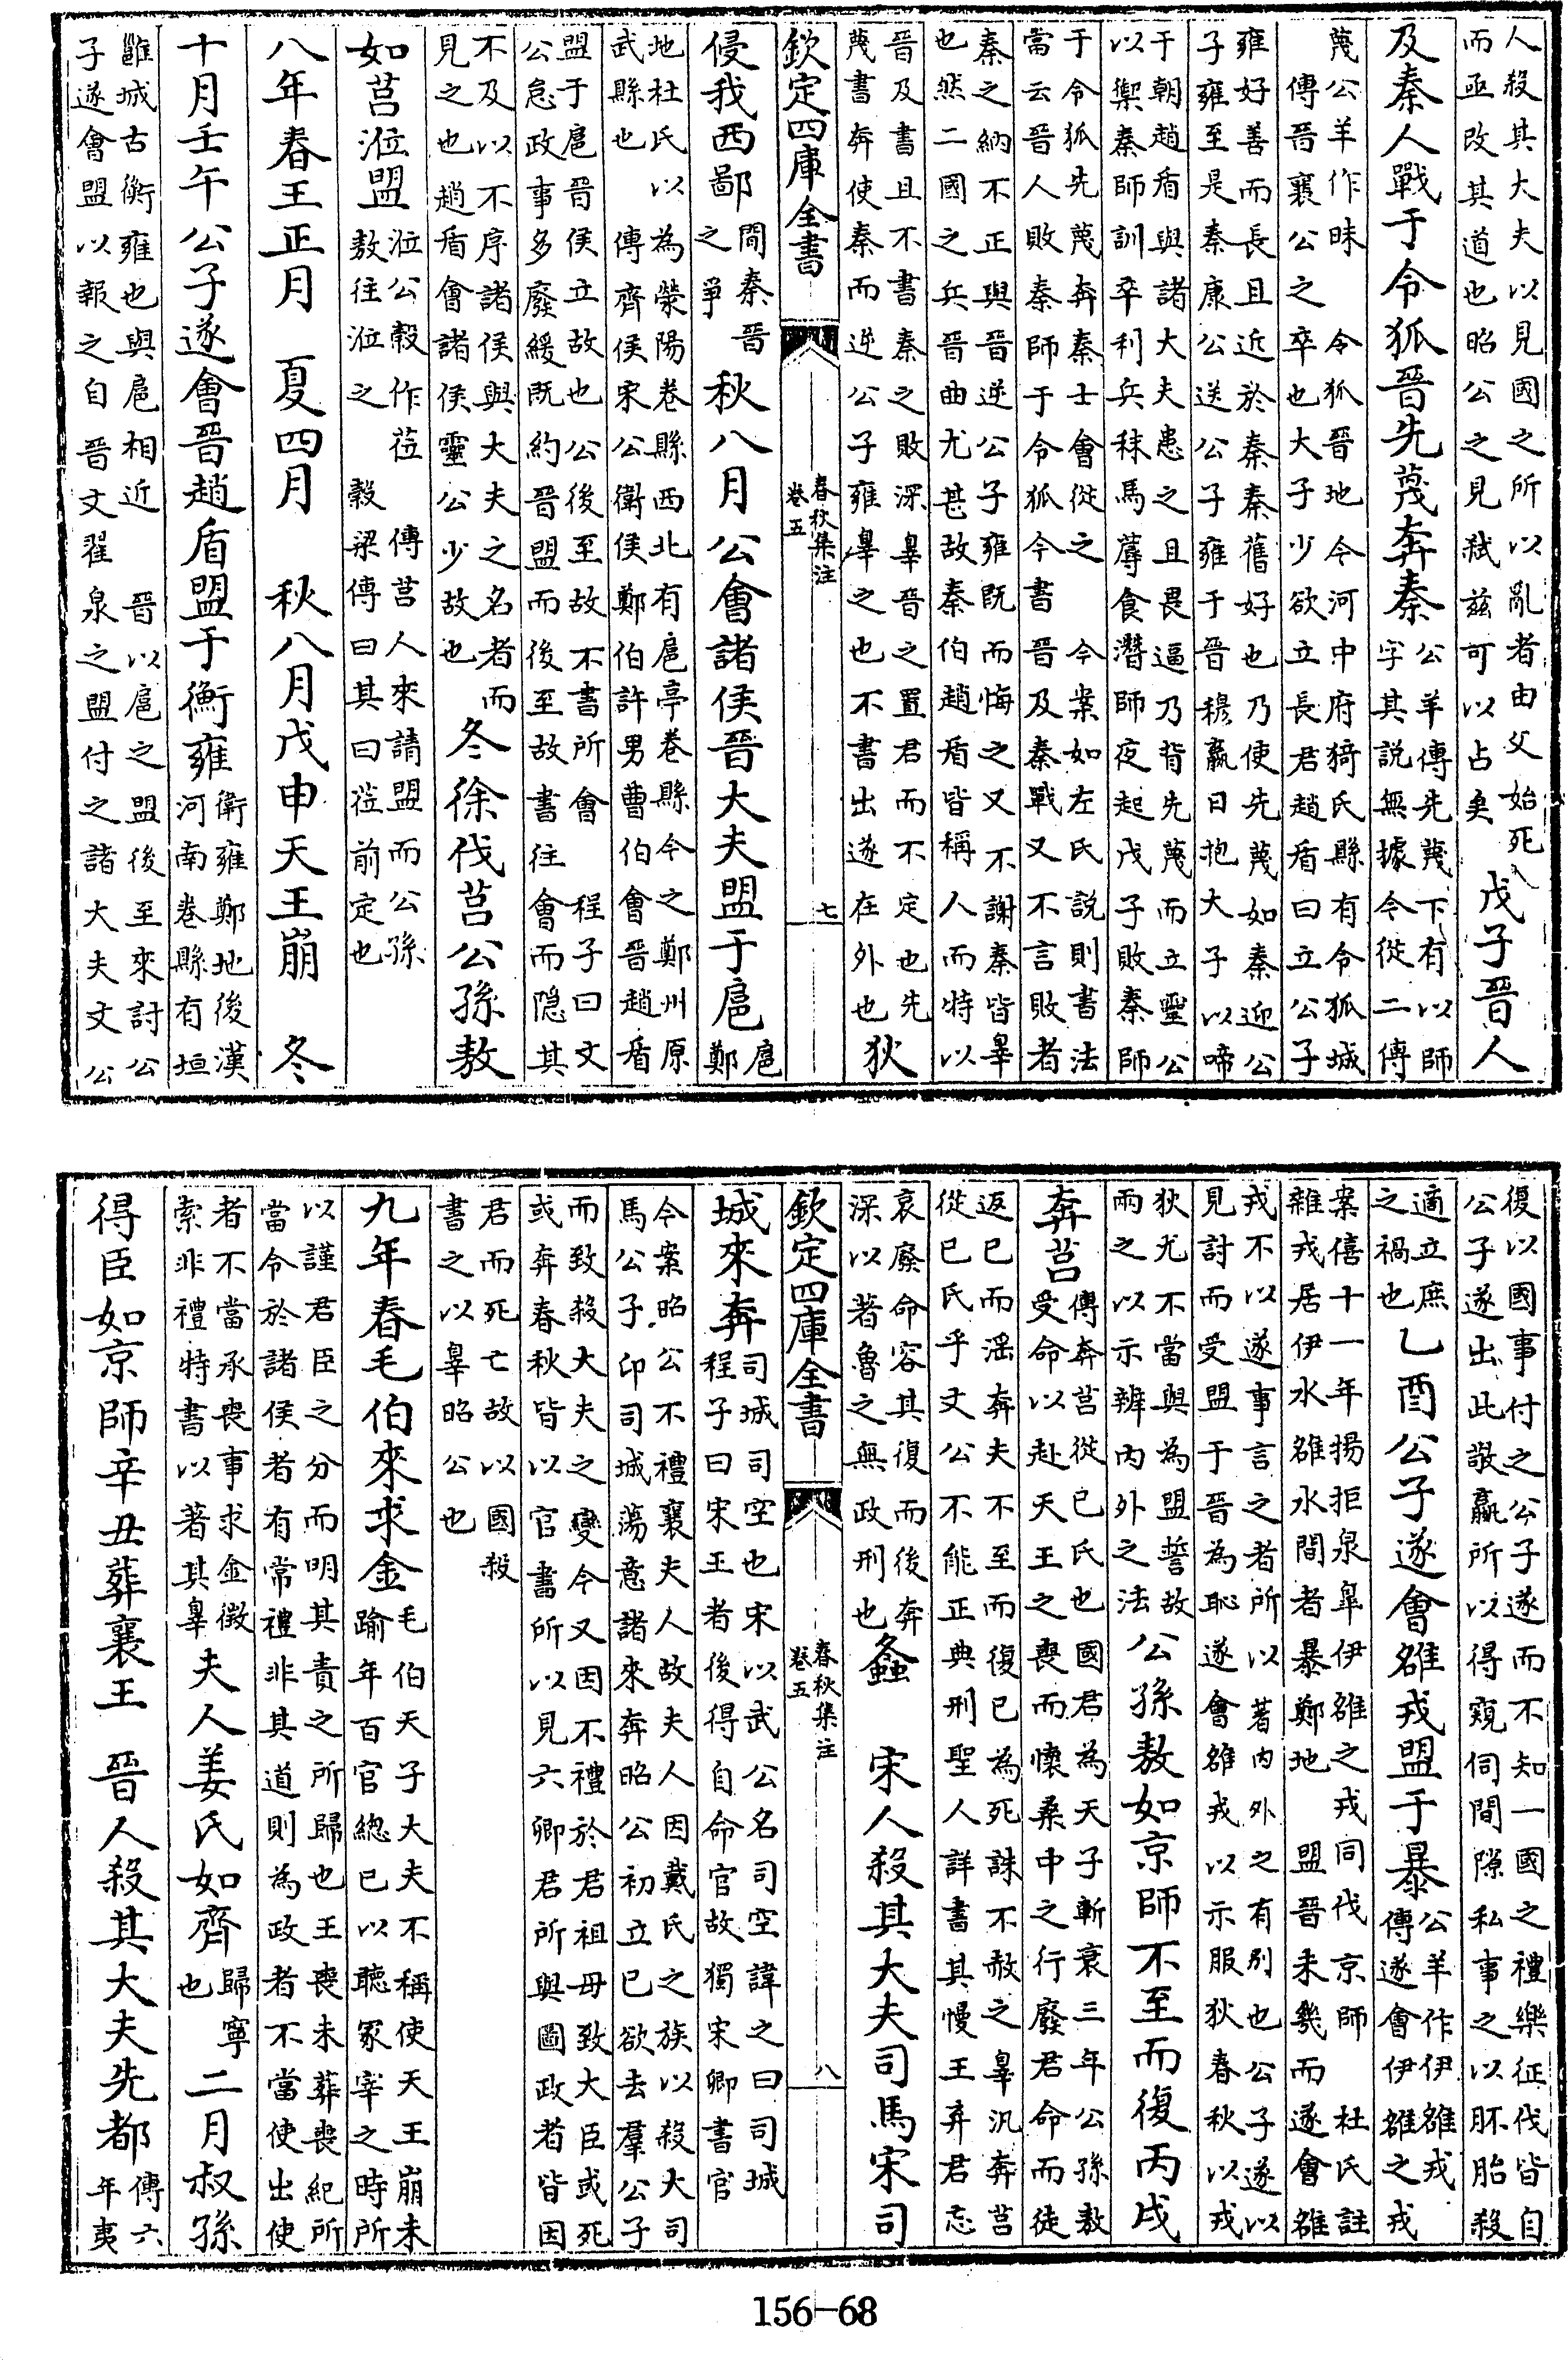 人殺其大夫以見國之所以亂者由父始死
而亟改其道也昭公之見弑茲可以占矣
戊子晉人
及秦人戰于令狐晉先蔑奔秦
公羊傳先蔑下有以師
字其説無據今從二傳
蔑公羊作昧
令狐晉地今河中府猗氏縣有令狐城
傳晉襄公之卒也大子少欲立長君趙盾曰立公子
雍好善而長且近於秦秦舊好也乃使先蔑如秦迎公
子雍至是秦康公送公子雍于晉穆嬴日抱大子以啼
于朝趙盾與諸大夫患之且畏逼乃背先蔑而立靈公
以禦秦師訓卒利兵秣馬蓐食潛師夜起戊子敗秦師
于令狐先蔑奔秦士會從之
今案如左氏説則書法
當云晉人敗秦師于令狐今書
晉及秦戰又不言敗者
秦之納不正與晉逆公子雍既而悔之又不謝秦皆辠
也然二國之兵晉曲尤甚故秦伯趙盾皆稱人而特以
晉及書且不書秦之敗深辠晉之置君而不定也先
蔑書奔使秦而逆公子雍辠之也不書出遂在外也
狄
欽定四庫全書
春秋集注
卷五
七
侵我西鄙
間秦晉
之爭
秋八月公會諸侯晉大夫盟于扈
扈
鄭
地杜氏以為滎陽卷縣西北有扈亭卷縣今之鄭州原
武縣也
傳齊侯宋公衛侯鄭伯許男曹伯會晉趙盾
盟于扈晉侯立故也公後至故不書所會
程子曰文
公怠政事多廢緩既約晉盟而後至故書往會而隱其
不及以不序諸侯與大夫之名者而
見之也趙盾會諸侯靈公少故也
冬徐伐莒公孫敖
如莒涖盟
涖公穀作莅
傳莒人來請盟而公孫
敖往涖之
穀梁傳曰其曰莅前定也
八年春王正月
夏四月
秋八月戊申天王崩
冬
十月壬午公子遂會晉趙盾盟于衡雍
衡雍鄭地後漢
河南卷縣有垣
雝城古衡雍也與扈相近
晉以扈之盟後至來討公
子遂會盟以報之自晉文翟泉之盟付之諸大夫文公
復以國事付之公子遂而不知一國之禮樂征伐皆自
公子遂出此敬嬴所以得窺伺間隙私事之以胚胎殺
適立庶
之禍也
乙酉公子遂會雒戎盟于暴
公羊作伊雒戎
傳遂會伊雒之戎
案僖十一年揚拒泉臯伊雒之戎同伐京師
杜氏註
雜戎居伊水雒水間者暴鄭地
盟晉未幾而遂會雒
戎不以遂事言之者所以著内外之有别也公子遂以
見討而受盟于晉為恥遂會雒戎以示服狄春秋以戎
狄尤不當與為盟誓故
兩之以示辨内外之法
公孫敖如京師不至而復丙戌
奔莒
傳奔莒從已氏也國君為天子斬衰三年公孫敖
受命以赴天王之喪而懷桑中之行廢君命而徒
返已而滛奔夫不至而復已為死誅不赦之辠汎奔莒
從已氏乎文公不能正典刑聖人詳書其慢王弃君忘
哀廢命容其復而後奔
深以著魯之無政刑也
螽
宋人殺其大夫司馬宋司
欽定四庫全書
春秋集注
卷五
八
城來奔
司城司空也宋以武公名司空諱之曰司城
程子曰宋王者後得自命官故獨宋卿書官
今案昭公不禮襄夫人故夫人因戴氏之族以殺大司
馬公子卬司城蕩意諸來奔昭公初立已欲去羣公子
而致殺大夫之變今又因不禮於君祖母致大臣或死
或奔春秋皆以官書所以見六卿君所與圖政者皆因
君而死亡故以國殺
書之以辠昭公也
九年春毛伯來求金
毛伯天子大夫不稱使天王崩未
踰年百官總已以聽冢宰之時所
以謹君臣之分而明其責之所歸也王喪未葬喪紀所
當令於諸侯者有常禮非其道則為政者不當使出使
者不當承喪事求金徴
索非禮特書以著其辠
夫人姜氏如齊
歸寧
也
二月叔孫
得臣如京師辛丑葬襄王
晉人殺其大夫先都
傳六
年夷
156-68